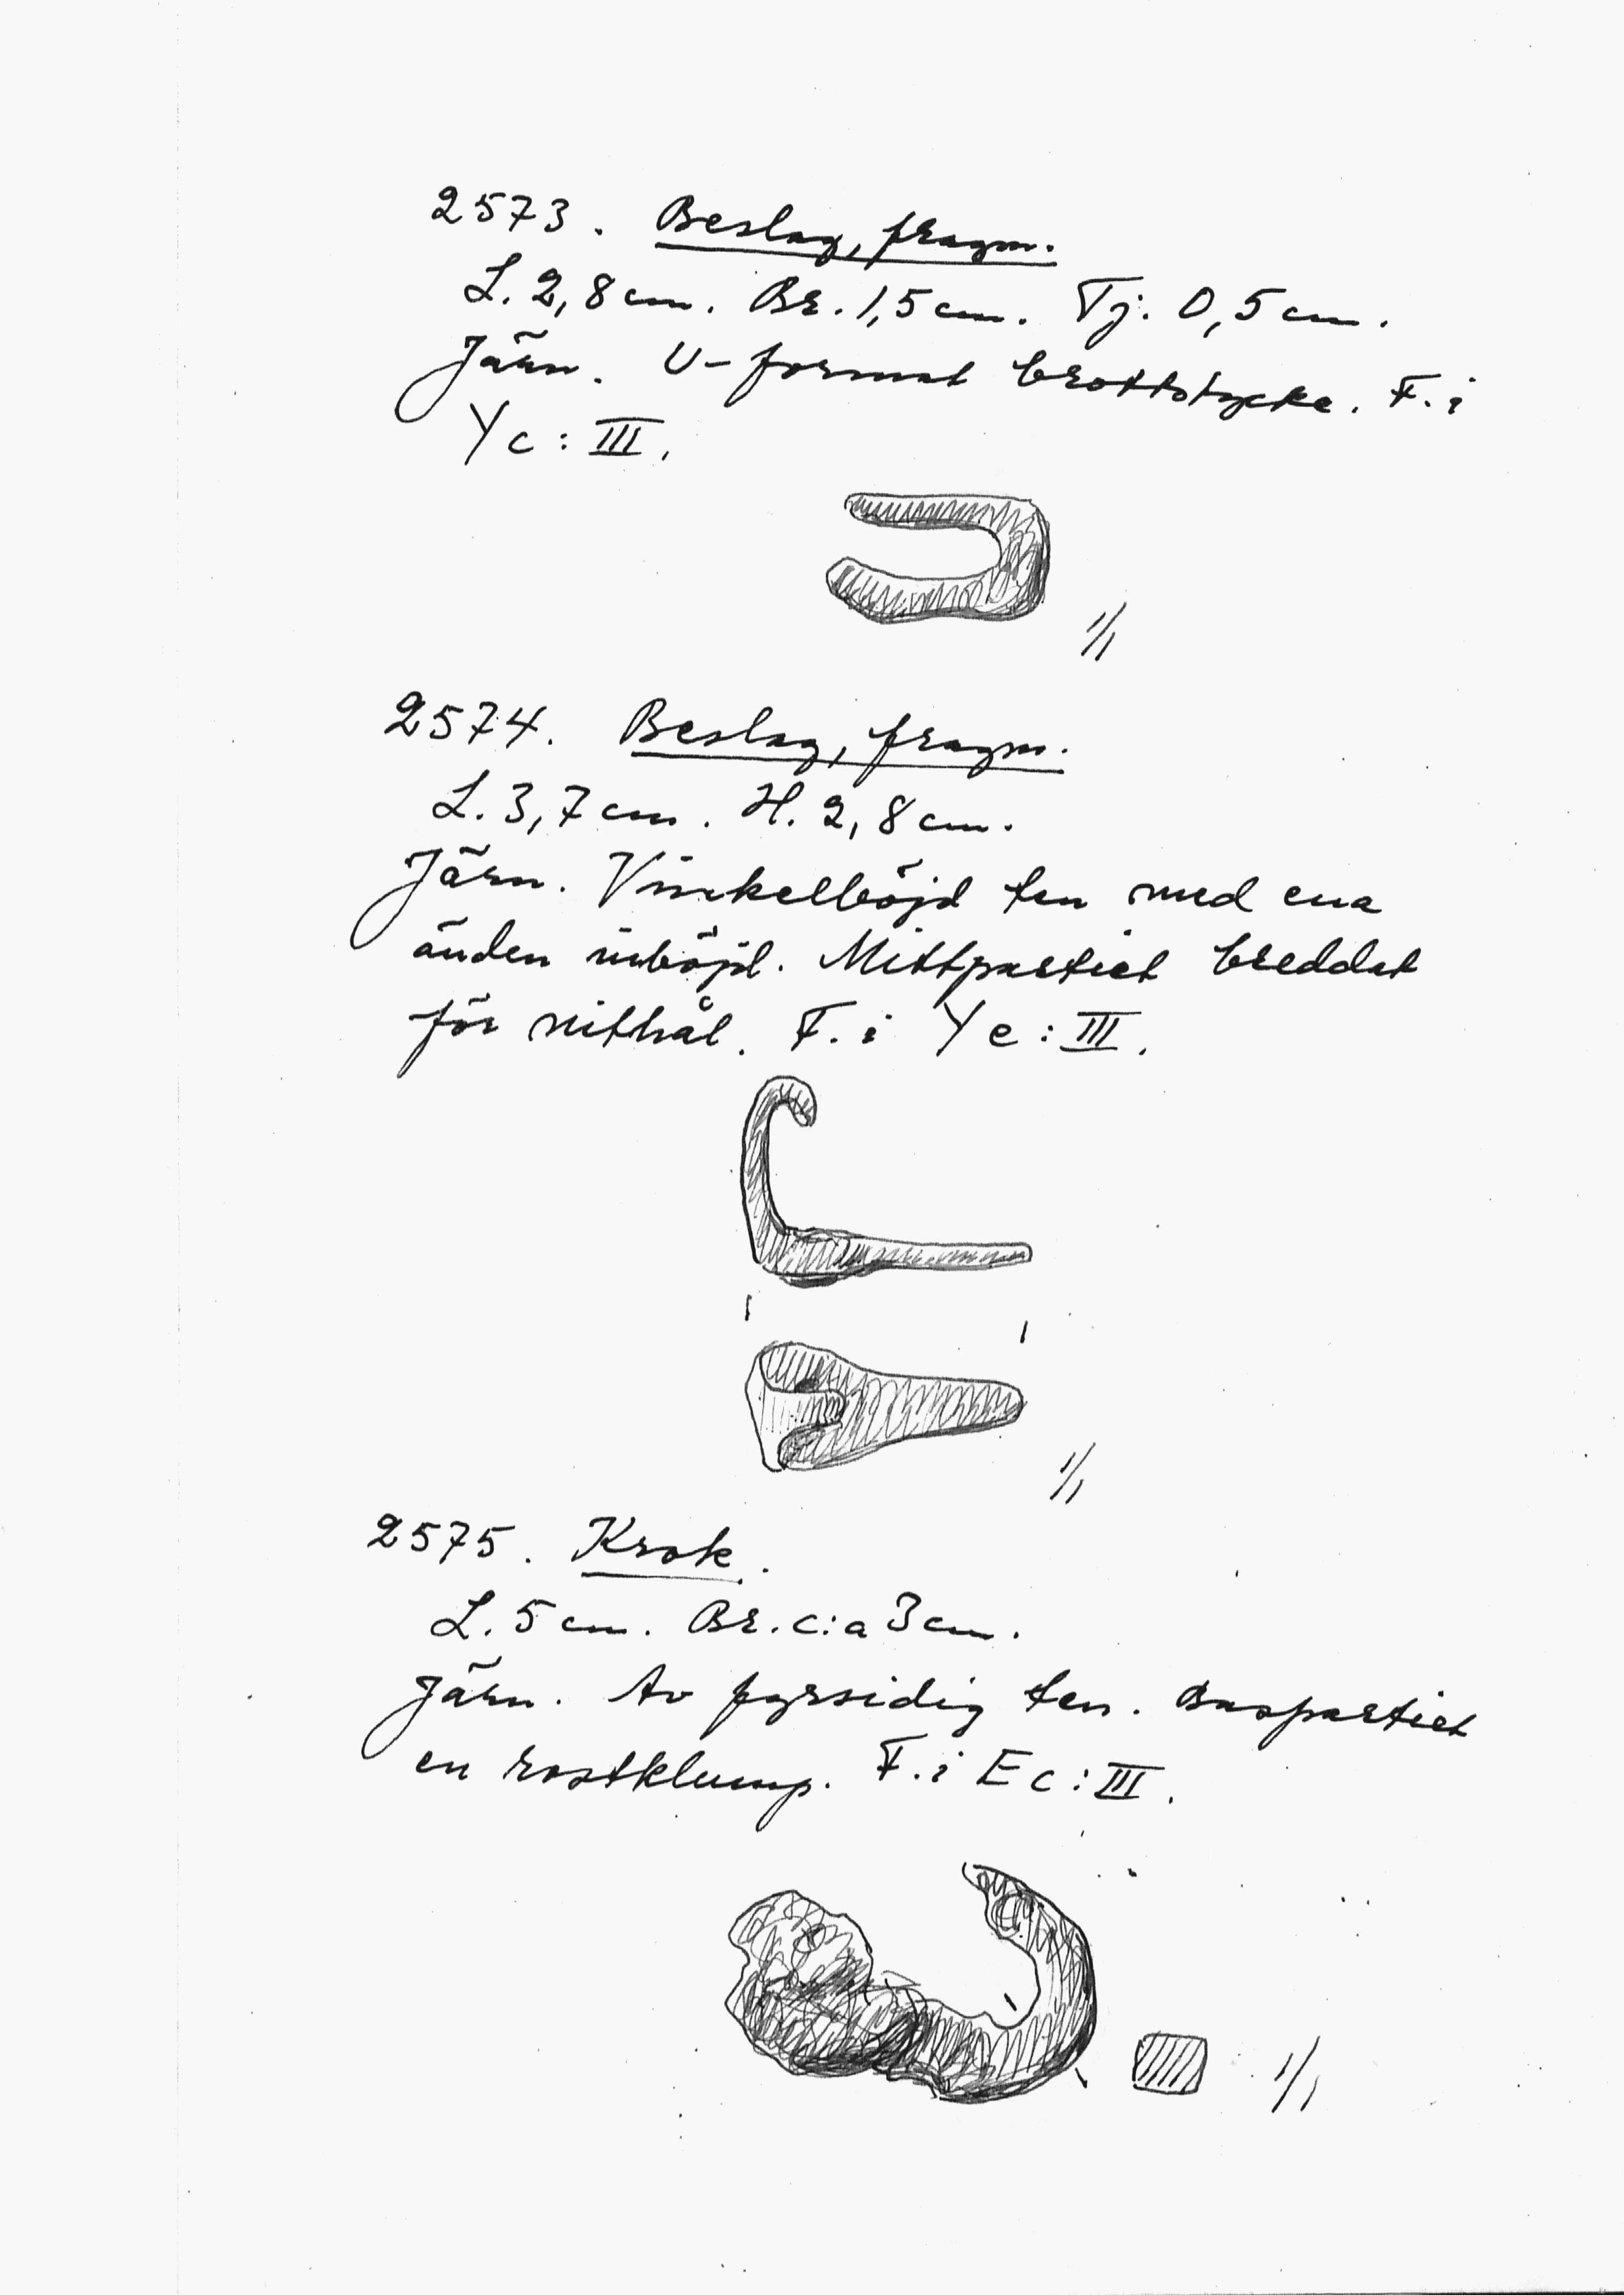 2573. Beslag, fragm.
L. 2,8 cm. Br. 1,5 cm. Tj. 0,5 cm.
Järn. U-format brottstycke. F. i
Yc : III.
1/1
2574. Beslag, fragm.
L. 3,7 cm. H. 2,8 cm.
Järn. Vinkelböjd ten med ena
änden inböjd. Mittpartiet breddat
för nithål. F. i Ye : III.
1/1
2575. Krok.
L. 5 cm. Br. c:a 3 cm.
Järn. Av fyrsidig ten. Baspartiet
en rostklump. F. i Ec : III.
1/1